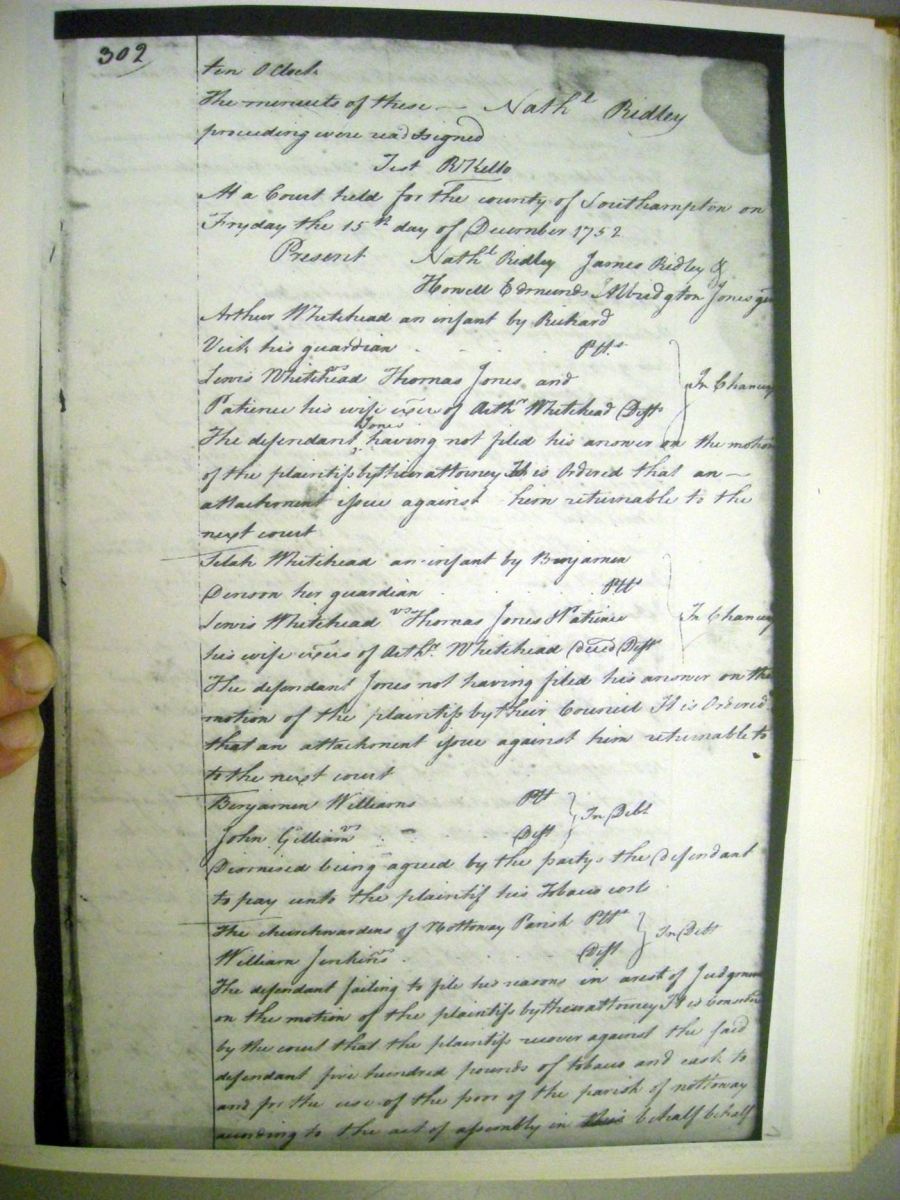 302
ten OClock
The menuets of these — Nathl Ridley
proceeding were read & signed
Test RKello
At a Court held for the county of Southampton on
Fryday the 15th day of December 1752
Present Nathl Ridley James Ridley &
Howell Edmunds Albridgton Jones gen
Arthur Whitehead an infant by Richard
Vick his guardian . . . Plts
vs
Lewis Whitehead Thomas Jones and
In Chancery
Patience his wife of Arthr Whitehead Defts
Jones
The defendant having not filed his answer on the motion
of the plaintifs by their attorney It is Ordered that an —
attachment issue against him returnable to the
next court
Selah Whitehead an infant by Benjamin
Denson her guardian . . . Plts
Lewis Whitehead vs Thomas Jones & Patience
In Chancery
his wife of Arthr Whitehead deced Defts
The defendant Jones not having filed his answer on the
motion of the plaintifs by their Council It is Ordered
that an attachment issue against him returnable to
to the next court
Benjamin Williams Plt
In Debt
vs
John Gilliam . . Deft
Dismised being agreed by the partys the defendant
to pay unto the plaintif his Tobacco costs
The churchwardens of Nottoway Parish Plts
In Debt
vs
William Jenkins . . . Deft
The defendant failing to file his reasons in arest of Judgment
on the motion of the plaintifs by their attorney It is
by the court that the plaintifs recover against the said
defendant five hundred pounds of tobacco and cask to
and for the use of the poor of the parish of nottoway
according to the act of assembly in behalf behalf